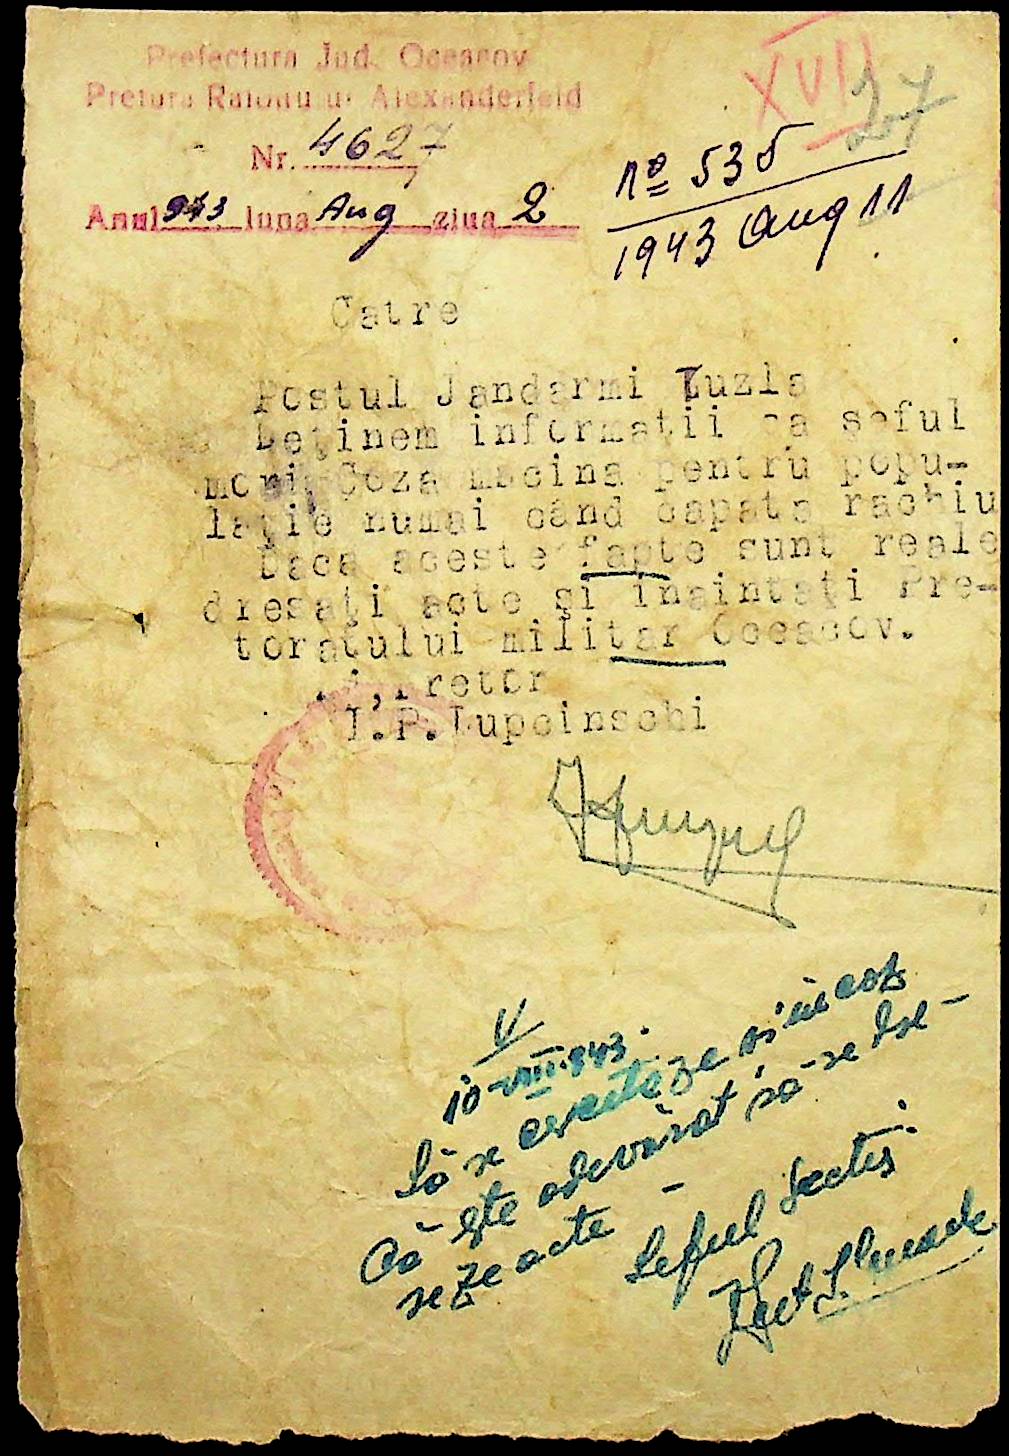 Prefectura Jud. Oceacov
Pretura Raionului Alexanderfeld
Nr. 4627
Anul 943 luna Aug ziua 2
XVII
27
No 535
1943 Aug 11
Catre
Postul Jandarmi Tuzla
Deţinem informaţii ca şeful
morii Coza macina pentru popu-
laţie numai când capata rachiu
Daca aceste fapte sunt reale
dresaţi acte şi înaintaţi Pre-
toratului militar Oceacov.
Pretor
I.P.Lupcinschi
V
10 VIII.943.
Să se cerceteze şi
Că este adevărat să se dre-
seze acte -
Şeful Secţiei